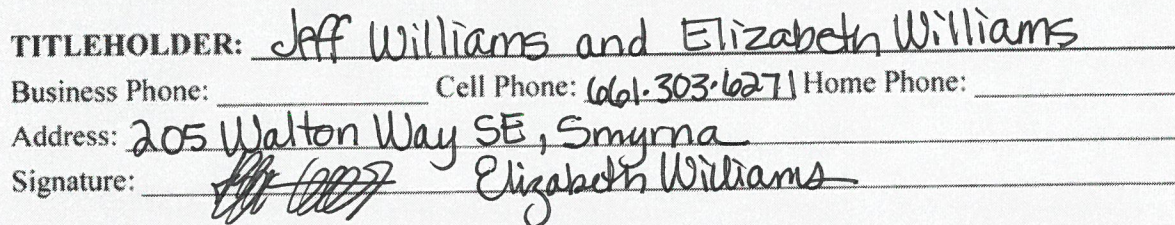 TITLEHOLDER: Jeff Williams and Elizabeth Williams
Business Phone: Cell Phone: 661.303.6271 Home Phone:
Address: 205 Walton Way SE, Smyrna
Signature: Elizabeth Williams